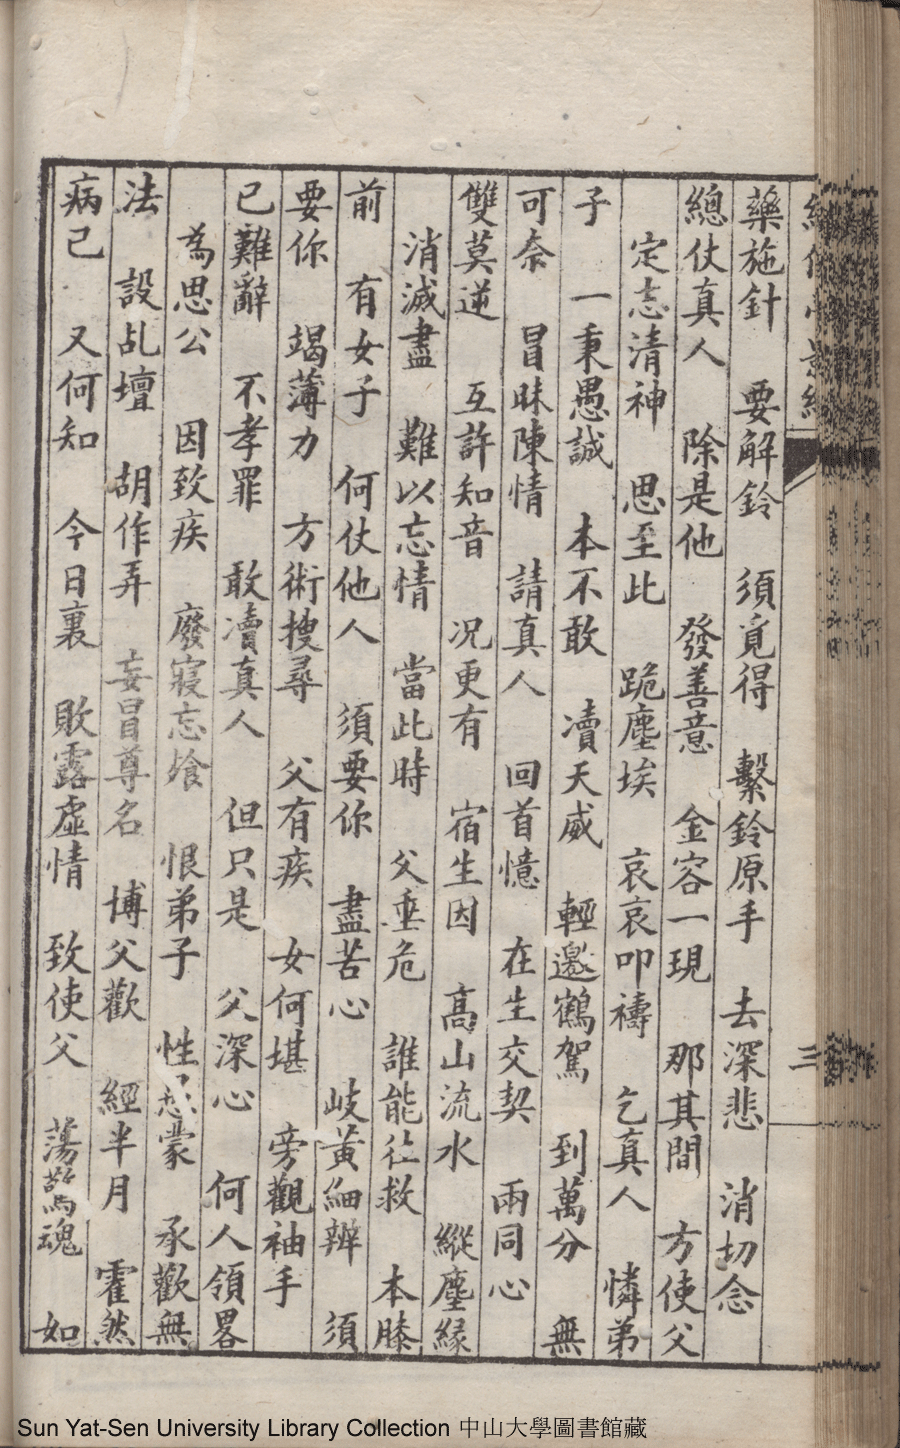 藥施針　要解鈴　須覓得　繫鈴原手　去深悲　消切念
總仗真人　除是他　發善意　金容一現　那其間　方使父
定志清神　思至此　跪塵埃　哀哀叩禱　乞真人　憐弟
子　一秉愚誠　本不敢　凟天威　輕邀鶴駕　到萬分　無
可奈　冒昧陳情　請真人　回首憶　在生交契　兩同心
雙莫逆　互許知音　况更有　宿生因　高山流水　縱塵緣
消滅盡　難以忘情　當此時　父垂危　誰能往救　本膝
前　有女子　何仗他人　須要你　盡苦心　岐黃細辨　須
要你　竭薄力　方術搜尋　父有疾　女何堪　旁觀袖手
已難辭　不孝罪　敢凟真人　但只是　父深心　何人領畧
為思公　因致疾　廢寢忘飧　恨弟子　性蒙　承歡無
法　設乩壇　胡作弄　妄冒尊名　博父歡　經半月　霍然
病已　又何知　今日裏　敗露虛情　致使父　蕩驚魂　如
三
Sun Yat-Sen University Library Collection 中山大學圖書館藏